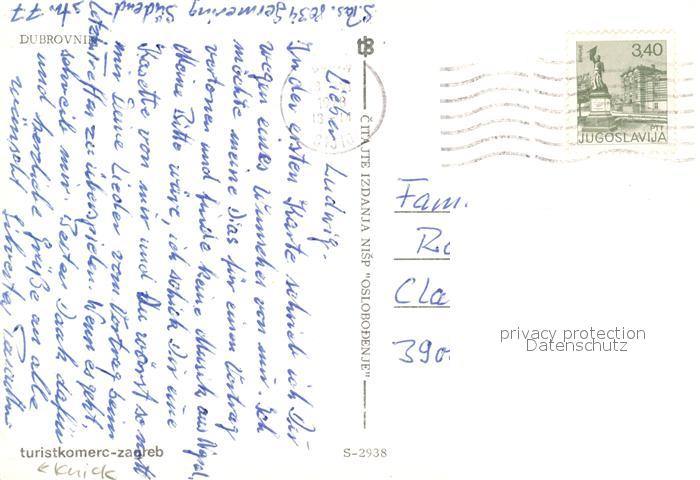 DUBROVNIK
Lieber Ludwig.
In der ersten Karte schrieb ich Dir
wegen eines Wunsches von mir. Ich
möchte meine Dias für einen Vortrag
vertonen und finde keine Musik aus
Meine Bitte wäre, ich schick Dir eine
Kasette von mir und Du wärst so nett
mir Deine Lieder vom Vortrag beim
zu überspielen. Wenn es geht,
schreib mir. Besten Dank dafür
und herzliche Grüße an alle
wünscht
Silvester
8034
77
turistkomerc-zagreb
Knick
S-2938
ČITAJTE IZDANJA NIŠP "OSLOBOĐENJE"
3,40
PTT
JUGOSLAVIJA
Fam.
Ro
Cla
390
privacy protection
Datenschutz